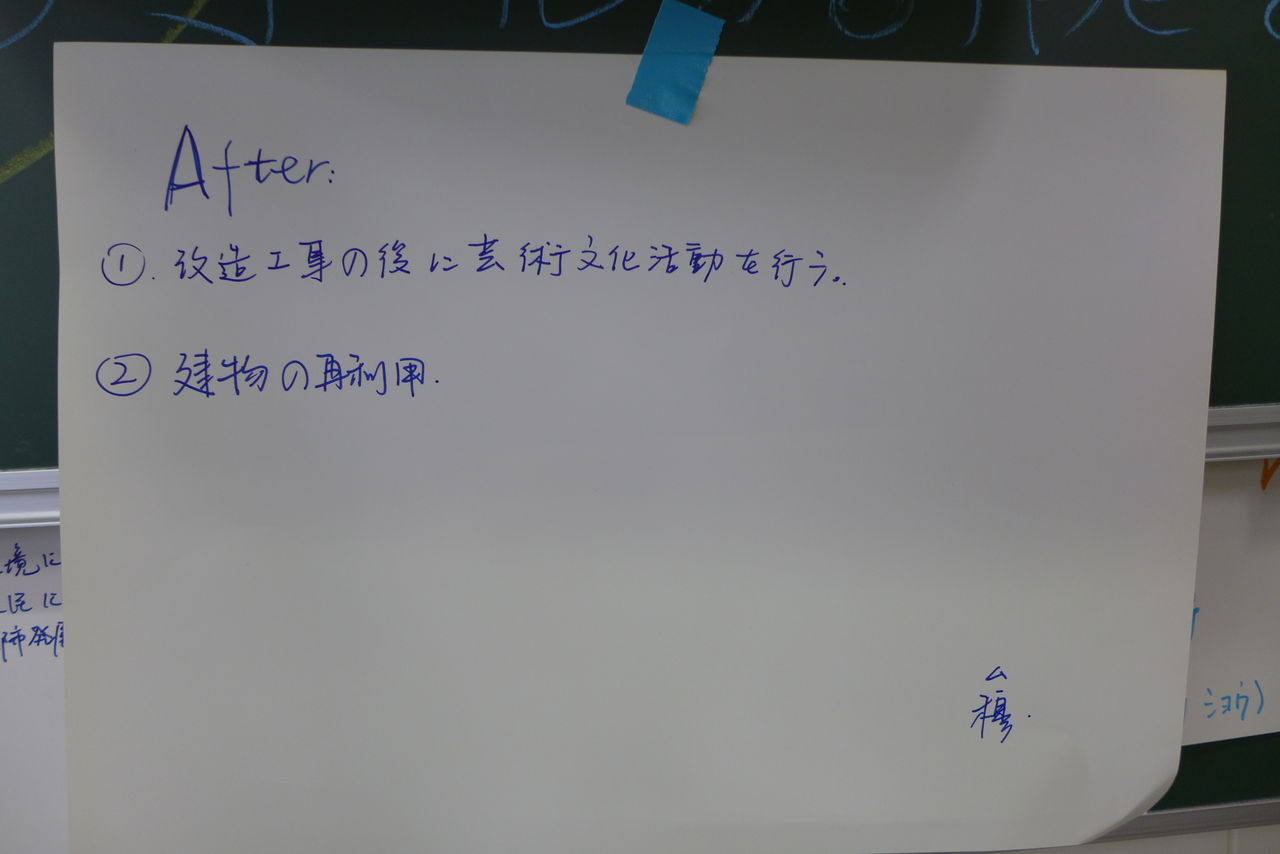 After:
①. 改造工事の後に芸術文化活動を行う。
② 建物の再利用.
ム
穆.
境に
民に
市発展
ショウ)